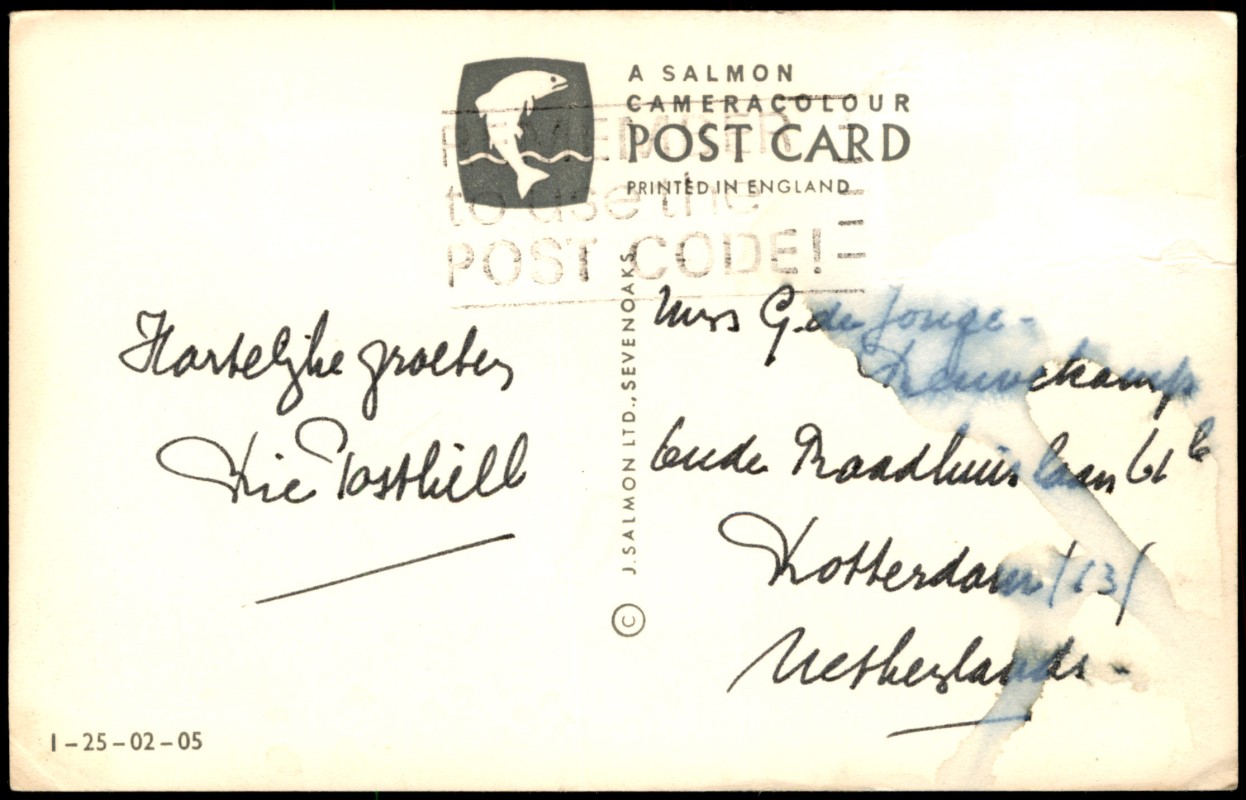 A SALMON
CAMERACOLOUR
POST CARD
PRINTED IN ENGLAND
REMEMBER
to use the
POST CODE!
J. SALMON LTD., SEVENOAKS
©
Hartelijke groeten
Tosthill
Mrs G. de Jonge-
Oude Raadhuislaan 61 b
Rotterdam /13/
Netherlands.
1-25-02-05